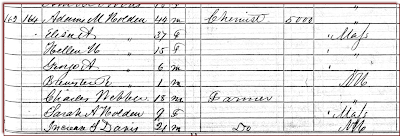 162 164 Adams M Holden 44 m Chemist 5000 "
Eliza A " 37 F Mass
Hellen N " 15 F "
George A " 6 m "
Brewster R " 1 m NH
Charles Webber 18 m Farmer
Sarah A Holden 9 F Mass
Freeman S Davis 21 m Do NH